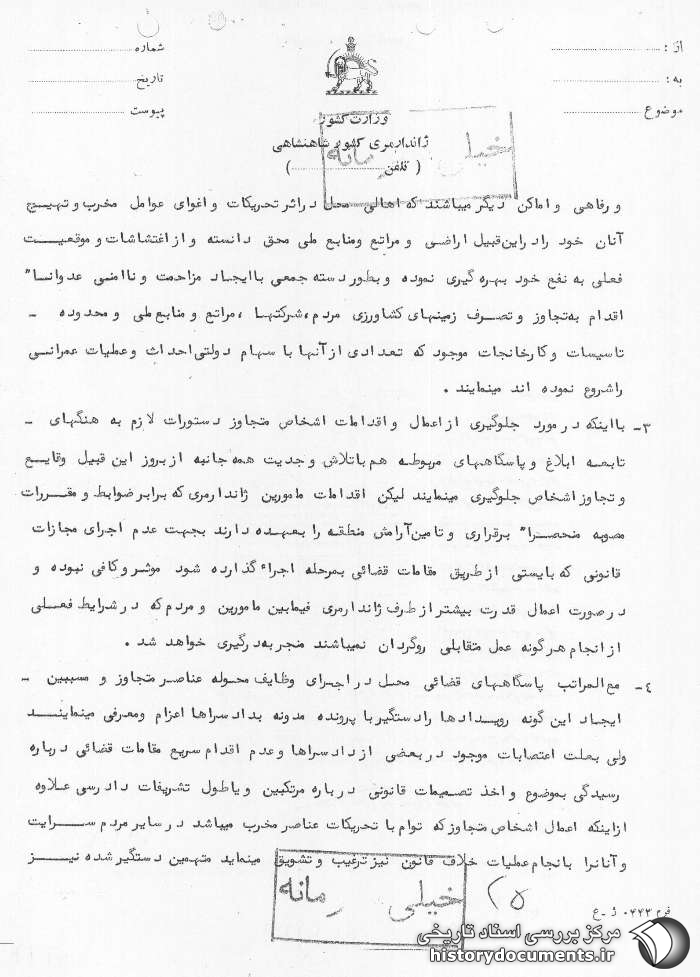 از :
به :
موضوع
شماره
تاریخ
پیوست
وزارت کشور
ژاندارمری کشور شاهنشاهی
( تلفن )
خیلی
و رفاهی و اماکن دیگر میباشند که اهالی محل در اثر تحریکات و اغوای عوامل مخرب و تهییج
آنان خود را در این قبیل اراضی و مراتع و منابع ملی محق دانسته و از اغتشاشات و موقعیت
فعلی به نفع خود بهره گیری نموده و بطور دسته جمعی با ایجاد مزاحمت و ناامنی عدوانا"
اقدام به تجاوز و تصرف زمینهای کشاورزی مردم ، شرکتها ، مراتع و منابع ملی و محدوده -
تاسیسات و کارخانجات موجود که تعدادی از آنها با سهام دولتی احداث و عملیات عمرانی
را شروع نموده اند مینمایند .
۳- با اینکه در مورد جلوگیری از اعمال و اقدامات اشخاص متجاوز دستورات لازم به هنگهای -
تابعه ابلاغ و پاسگاههای مربوطه هم با تلاش و جدیت همه جانبه از بروز این قبیل وقایع
و تجاوز اشخاص جلوگیری مینمایند لیکن اقدامات مامورین ژاندارمری که برابر ضوابط و مقررات
مصوبه منحصرا" برقراری و تامین آرامش منطقه را بعهده دارند بجهت عدم اجرای مجازات
قانونی که بایستی از طریق مقامات قضائی بمرحله اجراء گذارده شود موثر و کافی نبوده و
در صورت اعمال قدرت بیشتر از طرف ژاندارمری فیمابین مامورین و مردم که در شرایط فعلی
از انجام هر گونه عمل متقابلی روگردان نمیباشند منجر به درگیری خواهد شد .
٤- مع المراتب پاسگاههای قضائی محل در اجرای وظایف محوله عناصر متجاوز و مسببین -
ایجاد این گونه رویدادها را دستگیر با پرونده مدونه بدادسراها اعزام و معرفی مینمایند
ولی بعلت اعتصابات موجود در بعضی از دادسراها و عدم اقدام سریع مقامات قضائی درباره
رسیدگی بموضوع و اخذ تصمیمات قانونی درباره مرتکبین و یا طول تشریفات دادرسی علاوه
از اینکه اعمال اشخاص متجاوز که توام با تحریکات عناصر مخرب میباشد در سایر مردم سرایت
و آنانرا بانجام عملیات خلاف قانون نیز ترغیب و تشویق مینماید متهمین دستگیر شده نیز
خیلی
۲۵
فرم ۰۴۴۳ ژ-ع
مرکز بررسی اسناد تاریخی
historydocuments.ir